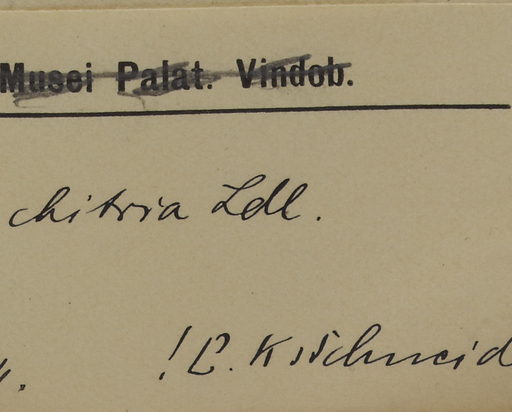 Musei Palat. Vindob.
chitria Ldl.
! C. K. Schneid